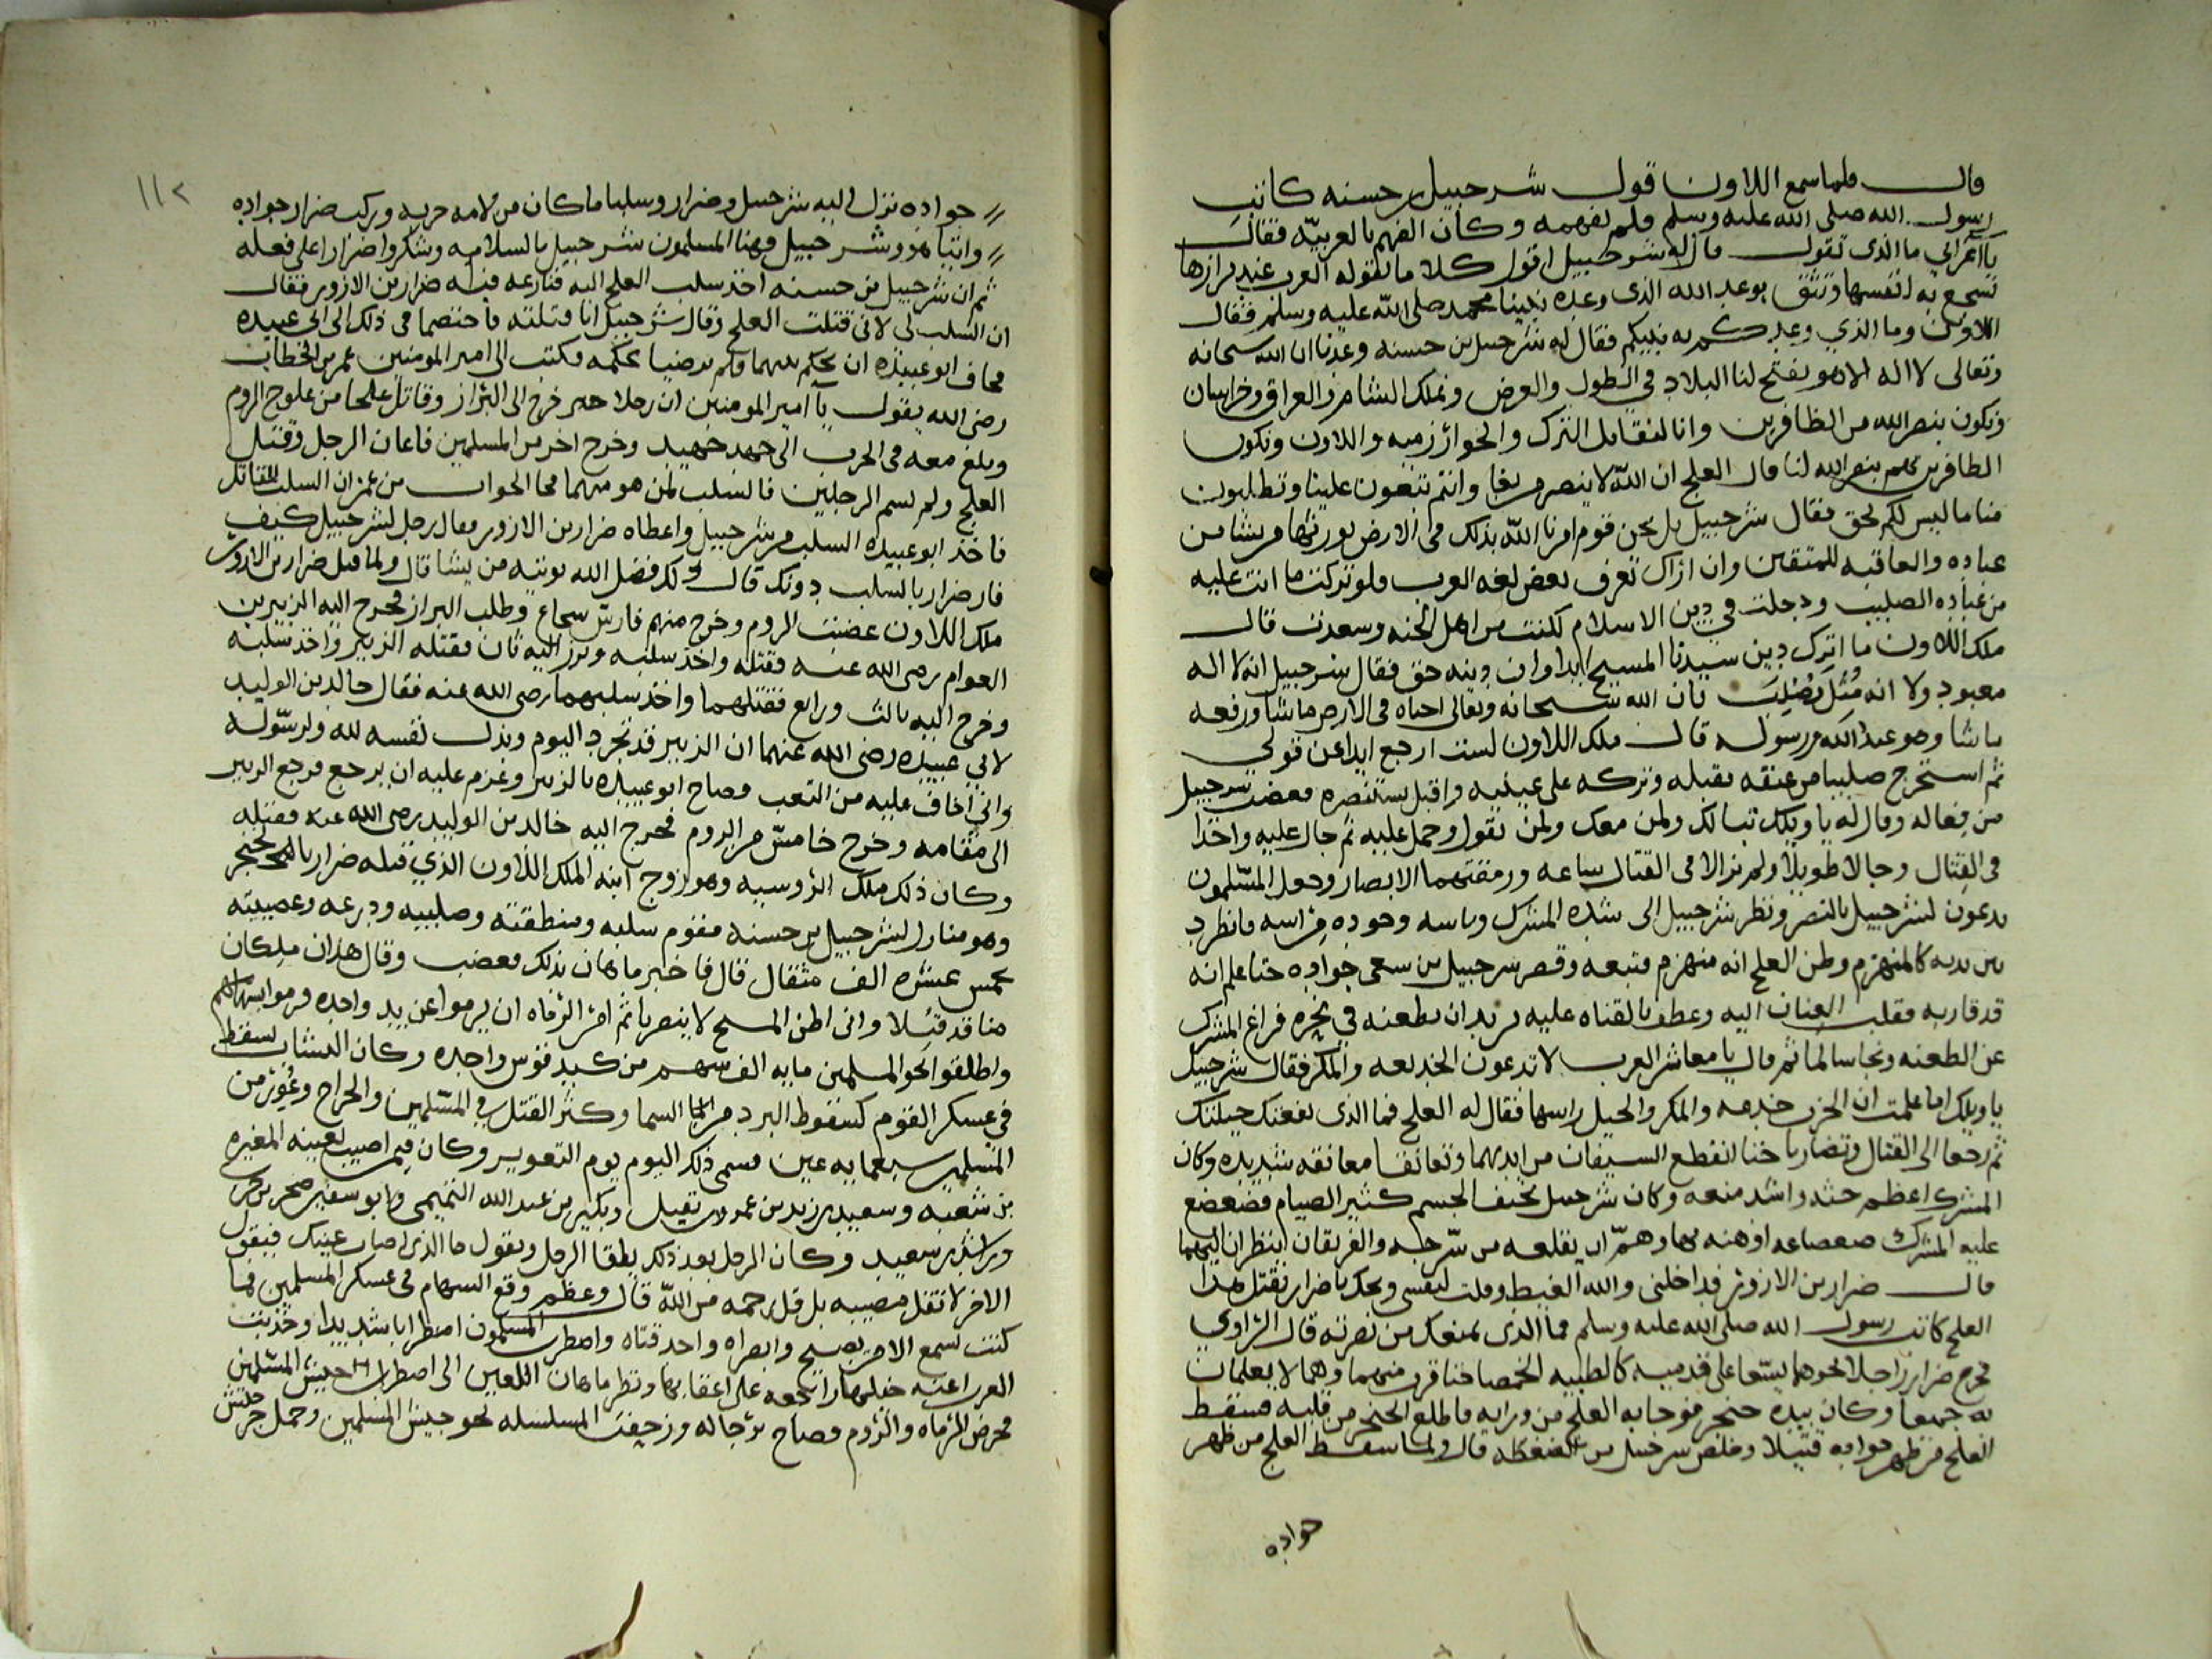 قال فلما سمع اللاون قول شرحبيل بن حسنه كاتب
رسول الله صلى الله عليه وسلم فلم يفهمه وكان الفهم بالعربيه فقال
يا اعرابي ما الذي تقول قال له شرحبيل اقول كلاما تقوله العرب عند برازها
تشجع به انفسها وتثق بوعد الله الذي وعده نبينا محمد صلى الله عليه وسلم فقال
اللاون وما الذي وعدكم به نبيكم فقال له شرحبيل بن حسنه وعدنا ان الله سبحانه
وتعالى لا اله الا هو يفتح لنا البلاد في الطول والعرض ونملك الشام والعراق وخراسان
ونكون بنصر الله من الظافرين وانا لنقاتل الترك والخوارزميه واللاون ونكون
الظافرين بهم بنصر الله لنا قال العلج ان الله لا ينصر من بغا وانتم تبغون علينا وتطلبون
منا ما ليس لكم بحق فقال شرحبيل بل نحن قوم امرنا الله بذلك في الارض يورثها من يشا من
عباده والعاقبه للمتقين وان اراك تعرف بعض لغه العرب فلو تركت ما انت عليه
من عباده الصليب ودخلت في دين الاسلام لكنت من اهل الجنه وسعدت قال
ملك اللاون ما اترك دين سيدنا المسيح ابدا وان دينه حق فقال شرحبيل انه لا اله
معبود ولا انه قتل وصلب بان الله سبحانه وتعالى احياه في الارض ما شا ورفعه
ما شا وهو عبد الله ورسوله قال ملك اللاون لست ارجع ابدا عن قولي
ثم استخرج صليبا من عنقه يقبله وتركه على عينيه واقبل يستنصره فغضب شرحبيل
من فعاله وقال له يا ويلك تبا لك ولمن معك ولمن يقول وحمل عليه ثم جال عليه واخذا
في القتال وجالا طويلا ولم يزالا في القتال ساعه ورمقتهما الابصار وجعل المسلمون
يدعون لشرحبيل بالنصر ونظر شرحبيل الى شده المشرك وباسه وجوده فراسه فانطرد
بين يديه كالمنهزم وظن العلج انه منهزم فتبعه وقصر شرحبيل من سعي جواده حتا علم انه
قد قاربه فقلب العنان اليه وعطف بالقناه عليه يريد ان يطعنه في نحره فراغ المشرك
عن الطعنه ونجا سالما ثم قال يا معاشر العرب لا تدعون الخديعه والمكر فقال شرحبيل
يا ويلك اما علمت ان الحرب خدعه والمكر والحيل راسها فقال له العلج فما الذي نفعتك حيلتك
ثم رجعا الى القتال وتضاربا حتا انقطع السيفان من ايديهما وتعانقا معانقه شديده وكان
المشرك اعظم جثه واشد منعه وكان شرحبيل نحيف الجسم كثير الصيام فضعضع
عليه المشرك ضعضاعه اوهنه بها وهم ان يقلعه من سرجه والفريقان ينظران اليهما
قال ضرار بن الازور قد اخلني والله الغيظ وقلت لنفسي ويحك يا ضرار يقتل هذا
العلج كاتب رسول الله صلى الله عليه وسلم فما الذي يمنعك من نصرته قال الراوي
فخرج ضرار راجلا نحوهما يسعا على قدميه كالظبيه الخمصا حتا قرب منهما وهما لا يعلمان
به جميعا وكان بيده خنجر فوجا به العلج من ورايه فاطلع الخنجر من قلبه فسقط
العلج من ظهر جواده قتيلا وخلص شرحبيل من الضغطه قال ولما سقط العلج من ظهر
جواده
١١٢
جواده نزل اليه شرحبيل وضرار وسلبا ما كان من لامه حربه وركب ضرار جواده
واتيا هو وشرحبيل وهنا المسلمون شرحبيل بالسلامه وشكروا ضرارا على فعله
ثم ان شرحبيل بن حسنه اخذ سلب العلج اليه فنازعه فيه ضرار بن الازور فقال
ان السلب لي لاني قتلت العلج وقال شرحبيل انا قتلته فاختصما في ذلك الى ابي عبيده
فخاف ابو عبيده ان يحكم بينهما فلم يرضيا بحكمه فكتب الى امير المومنين عمر بن الخطاب
رضي الله يقول يا امير المومنين ان رجلا خرج الى البراز وقاتل علجا من علوج الروم
وبلغ معه في الحرب الى جهد جهيد وخرج اخر من المسلمين فاعان الرجل وقتل
العلج ولم يسم الرجلين فالسلب لمن هو منهما فجا الجواب من عمر ان السلب للقاتل
فاخذ ابو عبيده السلب من شرحبيل واعطاه ضرار بن الازور فقال رجل لشرحبيل كيف
فاز ضرار بالسلب دونك قال ذلك فضل الله يوتيه من يشا قال ولما قتل ضرار بن الازور
ملك اللاون غضبت الروم وخرج منهم فارس شجاع وطلب البراز فخرج اليه الزبير بن
العوام رضي الله عنه فقتله واخذ سلبه وبرز اليه ثان فقتله الزبير واخذ سلبه
وخرج اليه ثالث ورابع فقتلهما واخذ سلبهما رضي الله عنه فقال خالد بن الوليد
لابي عبيده رضي الله عنهما ان الزبير قد تجرد اليوم وبذل نفسه لله ولرسوله
واني اخاف عليه من التعب فصاح ابو عبيده بالزبير وعزم عليه ان يرجع فرجع الزبير
الى مقامه وخرج خامس من الروم فخرج اليه خالد بن الوليد رضي الله عنه فقتله
وكان ذلك ملك الروسيه وهو زوج ابنه الملك اللاون الذي قتله ضرار بالخنجر
وهو منازل لشرحبيل بن حسنه فقوم سلبه ومنطقته وصليبه ودرعه وعصبته
بخمس عشره الف مثقال قال فاخبر ماهان بذلك فغضب وقال هذان ملكان
منا قد قتلا واني اظن المسيح لا ينصرنا ثم امر الرماه ان يرموا عن يد واحده ورموا سهامهم
واطلقوا نحو المسلمين مايه الف سهم من كبد قوس واحده وكان النشاب يسقط
في عسكر القوم كسقوط البرد من السما وكثر القتل في المسلمين والجراح وعور من
المسلمين سبعمايه عين فسمي ذلك اليوم يوم التعوير وكان فيمن اصيب بعينه المغيره
بن شعبه وسعيد بن زيد بن عمرو بن نفيل وبكير بن عبد الله التميمي وابو سفين صخر بن حرب
وراشد بن سعيد وكان الرجل بعد ذلك يلقا الرجل ويقول ما الذي اصاب عينك فيقول
الاخر لا تقل مصيبه بل قل رحمه من الله قال وعظم وقع السهام في عسكر المسلمين فما
كنت تسمع الا من يصيح وابصراه واحدقتاه واضطرب المسلمون اضطرابا شديدا وجذبت
العرب اعنه خيلها راجعه على اعقابها ونظر ماهان اللعين الى اضطراب جيش المسلمين
فحرض الرماه والروم وصاح برجاله وزحفت المسلسله نحو جيش المسلمين وحمل جرجيس